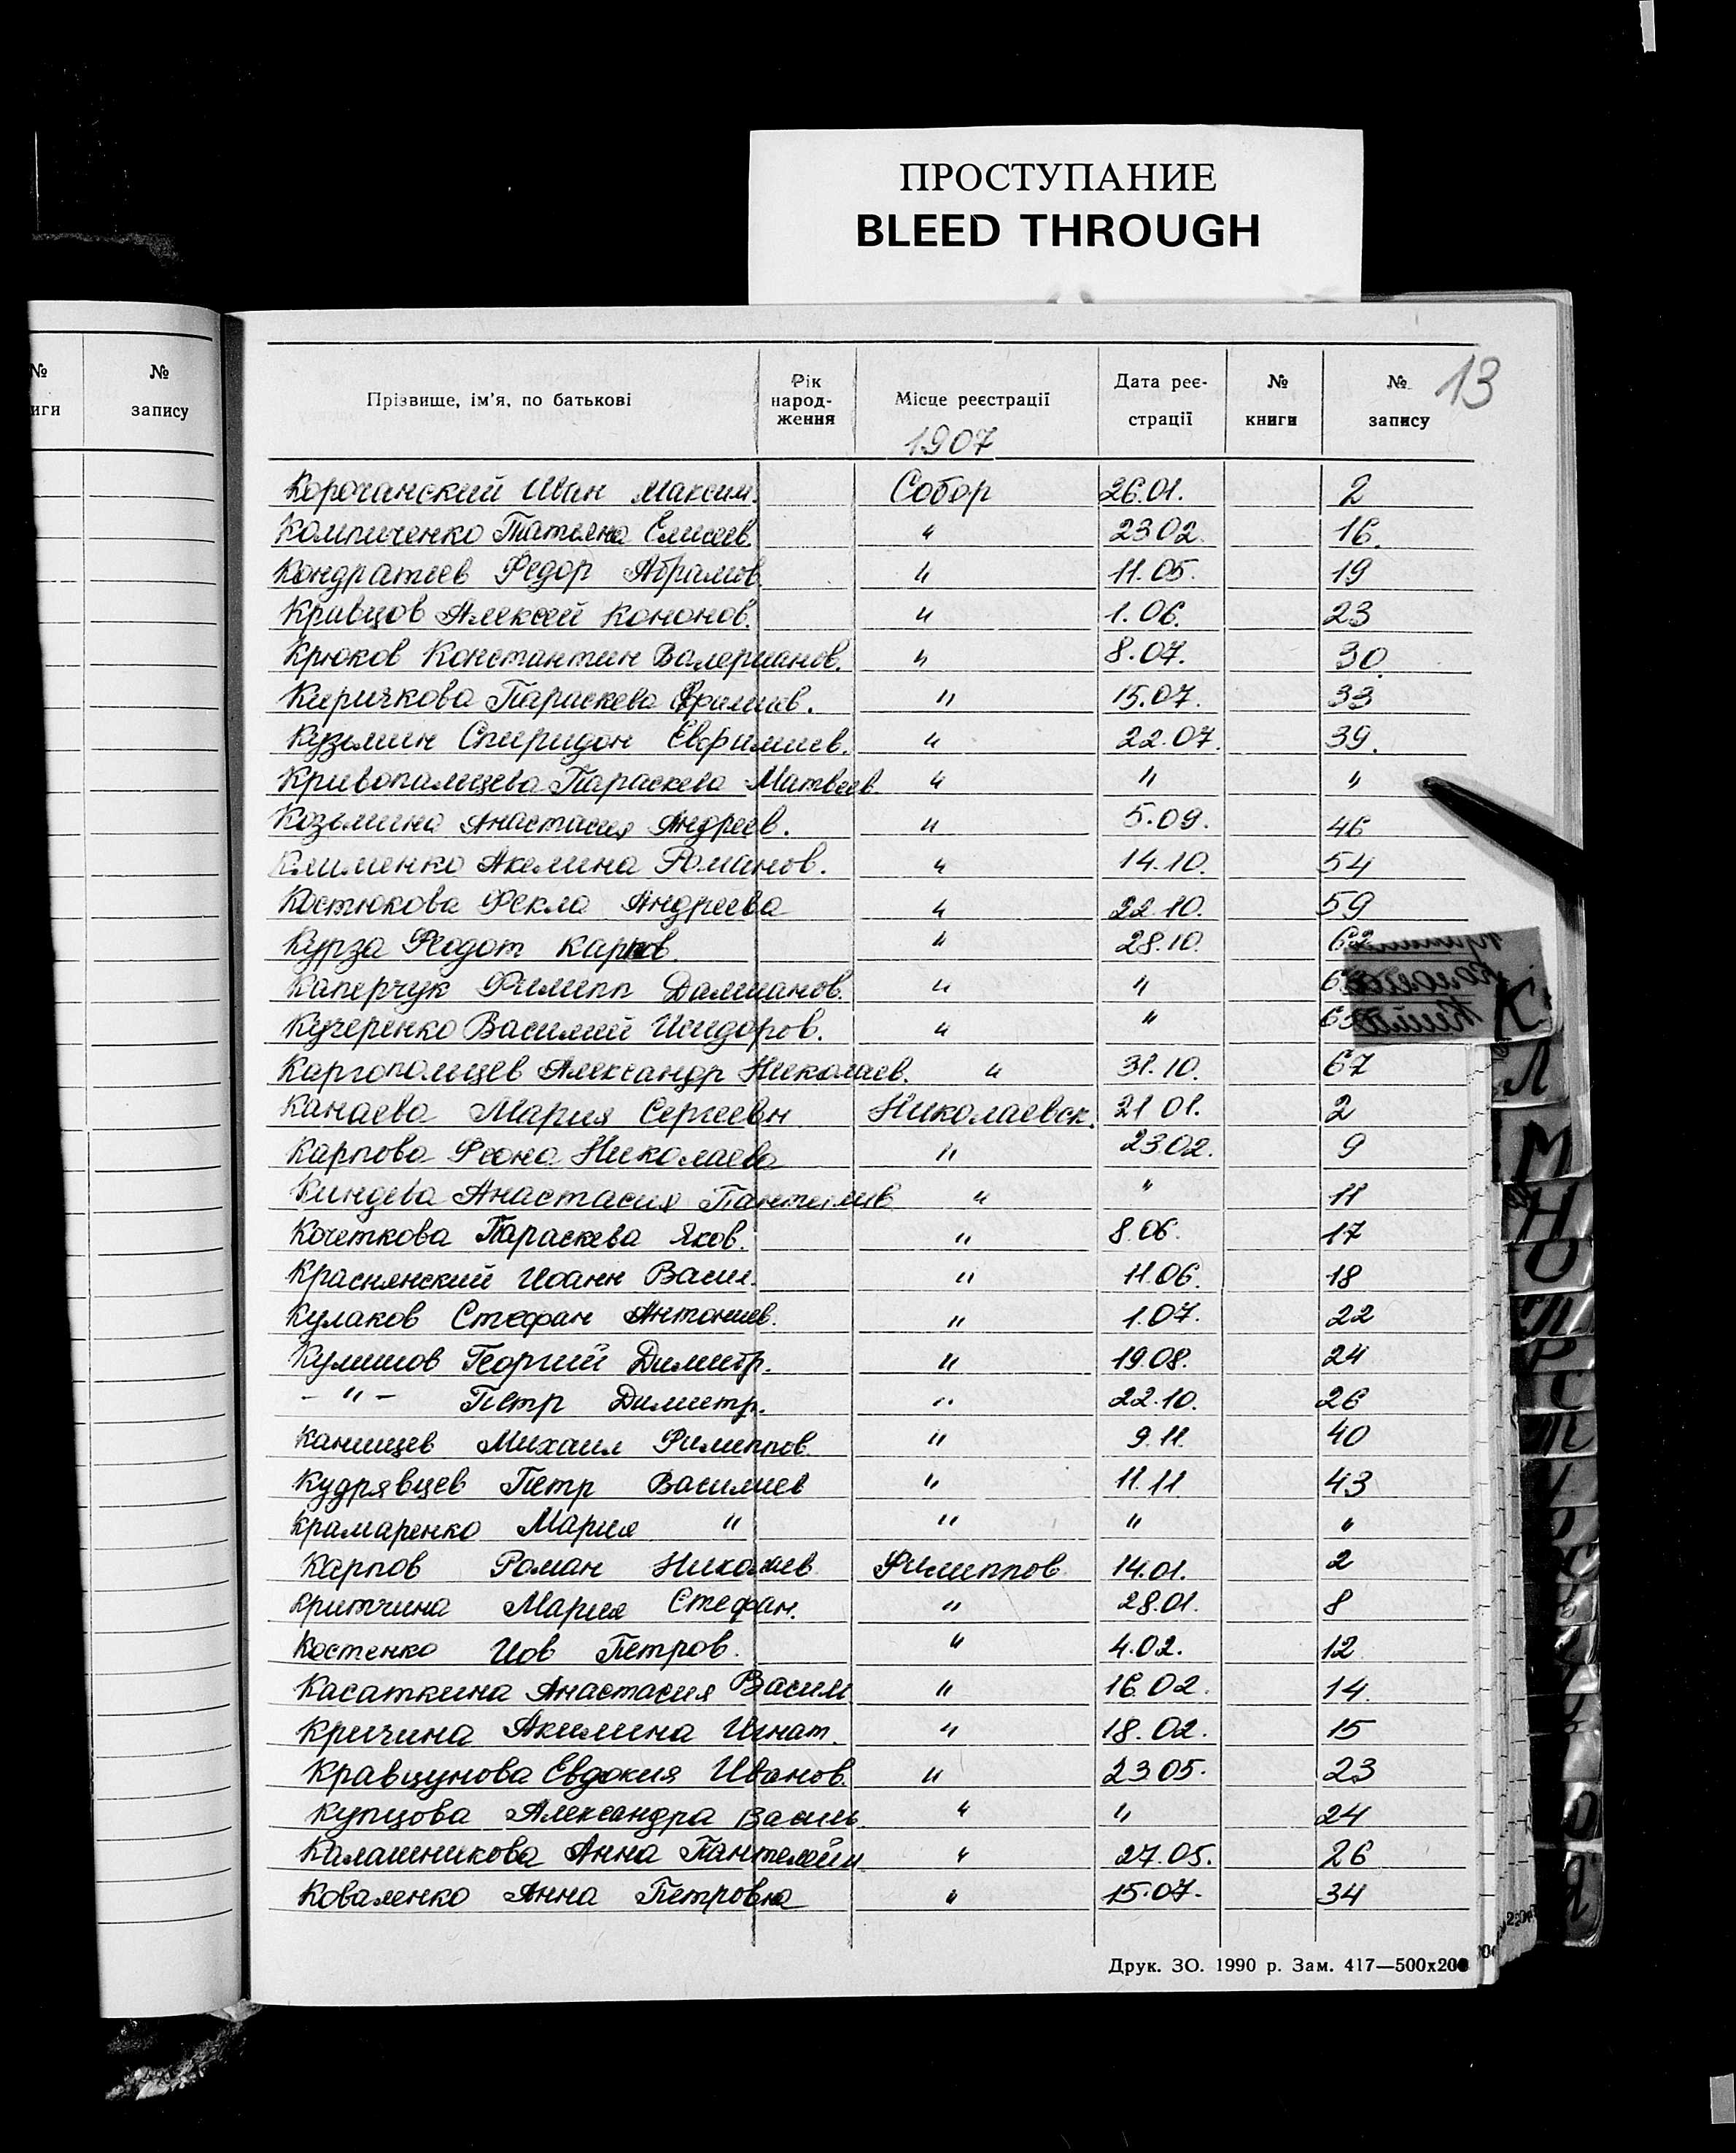 ПРОСТУПАНИЕ
BLEED THROUGH
№ иги № запису
Прізвище, ім'я, по батькові Рік народ-ження Місце реєстрації Дата реє-страції № книги № запису 13
1907
Корочанский Иван Максим. Собор 26.01. 2
Компиченко Татьяна Елисеев. " 23 02. 16.
Кондратиев Федор Абрамов. " 11.05. 19
Кравцов Алексей Кононов. " 1.06. 23
Крюков Константин Валерианов. " 8.07. 30.
Киричкова Параскева " 15.07. 33
Кузьмин Спиридон Евфимиев. " 22.07. 39.
Кривопальцева Параскева Матвеев. " " "
Козьмина Анастасия Андреев. " 5.09. 46
Клименко Акелина Романов. " 14.10. 54
Костюкова Фекла Андреева " 22.10. 59
Курза Феодот Карпов. " 28.10. 62
Каперчук Филипп Дамианов. " "
Кучеренко Василий Исидоров. " "
Каргопольцев Александр Николаев. " 31.10. 67
Канаева Мария Сергеевн Николаевск. 21 01. 2
Карпова Феона Николаева " 23.02. 9
Киндева Анастасия Пантелив " " 11
Кочеткова Параскева Яков. " 8.06. 17
Краснянский Иоанн Васил. " 11.06. 18
Кулаков Стефан Антониев. " 1.07. 22
Кулишов Георгий Димитр. " 19.08. 24
– " – Петр Димитр. " 22.10. 26
Канищев Михаил Филиппов. " 9.11. 40
Кудрявцев Петр Василиев " 11.11 43
Крамаренко Мария " " " "
Карпов Роман Николаев Филиппов 14.01. 2
Критчина Мария Стефан. " 28.01. 8
Костенко Иов Петров. " 4.02. 12
Касаткина Анастасия Васили " 16.02. 14.
Кричина Акилина Игнат. " 18.02. 15
Кравцунова Евдокия Иванов. " 23.05. 23
Купцова Александра Василь. " " 24
Калашникова Анна Пантелейм " 27.05. 26
Коваленко Анна Петровна " 15.07. 34
Друк. ЗО. 1990 р. Зам. 417—500х200
К
Л
М
Н
О
П
Р
С
Т